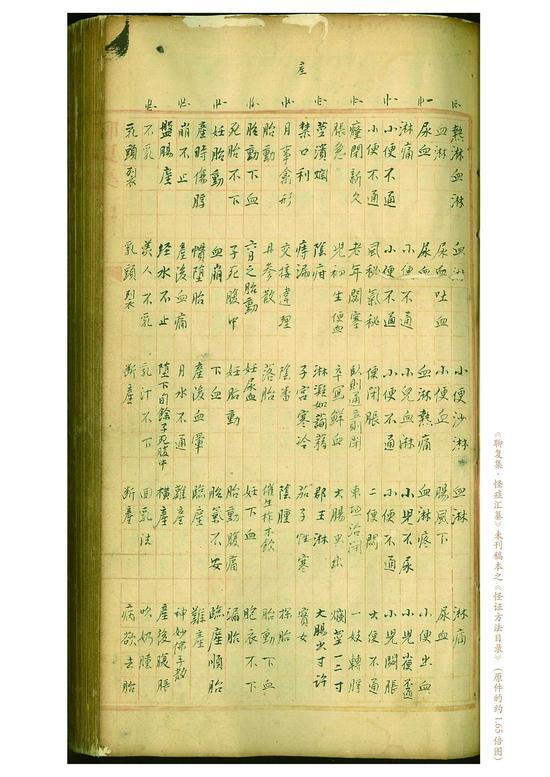 產
熱淋血淋 血淋 小便沙淋 血淋 淋痛
血淋 尿血吐血 小便血 腸風下 尿血
尿血 尿血 血淋熱痛 血淋疼 小便出血
淋痛 小便不通 小兒血淋 小兒不尿 小兒便
小便不通 小便不通 小便不通 小便不通 小兒閉脹
小便不通 風秘氣秘 便閉脹 二便閉 大便不通
癃閉新久 老年閉塞 臥則通立則閉 東垣治閉 一妓轉脬
脹急 兒初生便血 卒寫鮮血 大腸虫出 爛莖一二寸
莖潰爛 陰痔 淋漓如蒟蒻 郡王淋 大腸出寸許
禁口利 痔漏 子宮寒冷 茄子性寒 實女
月事禽形 交接違理 陰 陰腫 探胎
胎動 丹參散 落胎 催生柞木飲 胎動下血
胎動下血 六月之胎動 妊尿血 妊下血 胞衣不下
死胎不下 子死腹中 妊胎動 胎動腹痛 漏胎
妊胎動 血崩 下血 胎氣不安 臨產順胎
產時傷脬 慣墮胎 產後血暈 臨產 難產
崩不止 產後血痛 月水不通 難產 神妙佛手散
盤腸產 經水不止 墮下旬餘子死腹中 橫產 產後腹脹
不乳 人不乳 乳汁不下 回乳法 吹奶腫
乳頭裂 乳頭裂 断產 断產 病欲去胎
《聊复集·怪症汇纂》未刊稿本之《怪证方法目录》(原件的约1.65倍图)